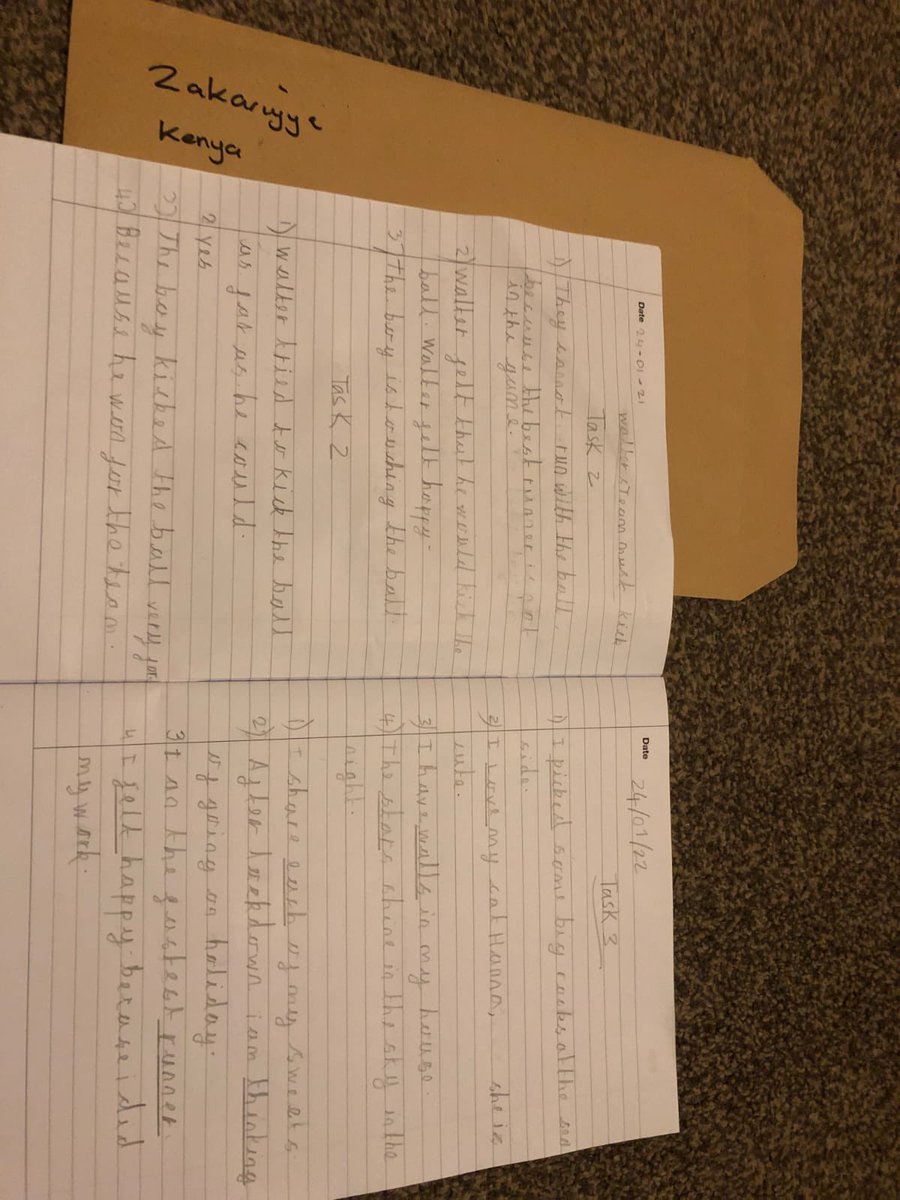 Zakariyye
Kenya
Date 24-01-21
walters Team must kick
Task 2
1) They cannot run with the ball,
because the best runner is not
in the game.
2) walter felt that he would kick the
ball. Walter felt happy.
3) The boy is touching the ball.
Task 2
1) Walter tried to kick the ball
as far as he could.
2 yes
3) The boy kicked the ball very far.
4) Because he won for the team.
Date 24/01/22
Task 3
1) I picked some big rocks at the sea
side.
2) I Love my cat Hanna, she is
cute.
3) I have walls in my house.
4) The stars shine in the sky in the
night.
1) I share each of my sweets.
2) After lockdown i am thinking
of going on holiday.
3 I am the fastest runner.
4 I felt happy because i did
my work.